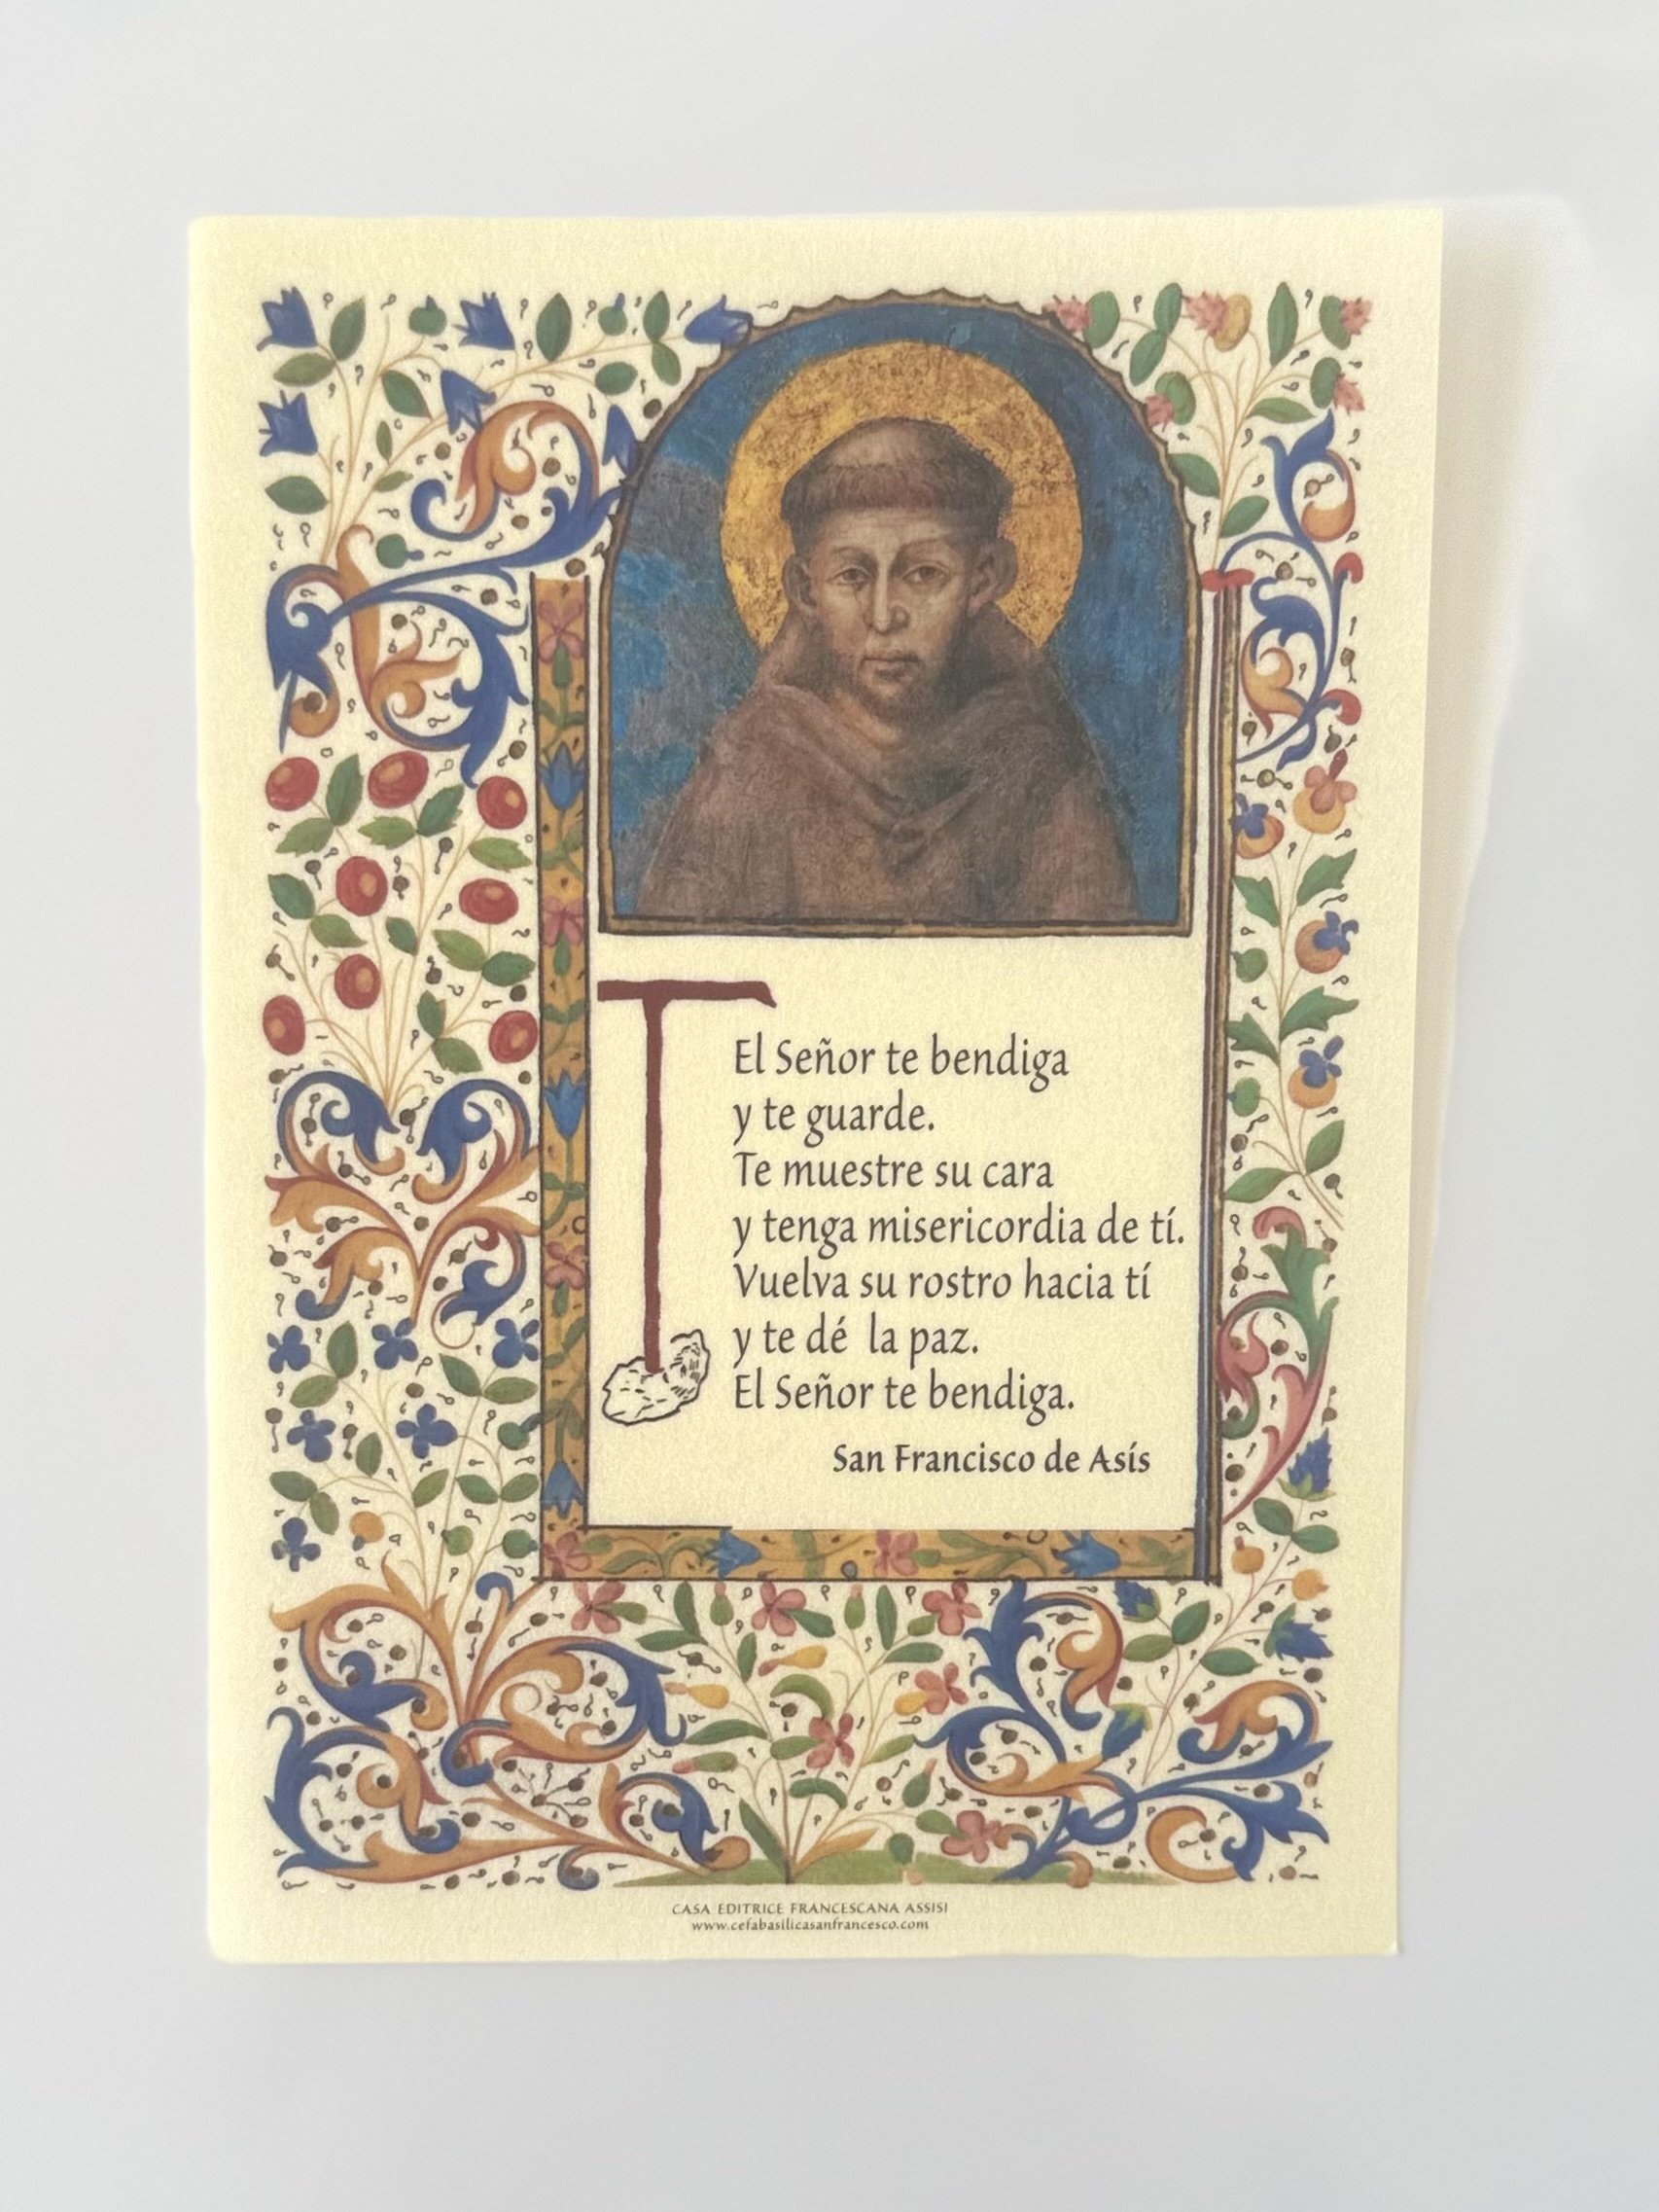 El Señor te bendiga
y te guarde.
Te muestre su cara
y tenga misericordia de tí.
Vuelva su rostro hacia tí
y te dé la paz.
El Señor te bendiga.
San Francisco de Asís
CASA EDITRICE FRANCESCANA ASSISI
www.cefabasilicasanfrancesco.com